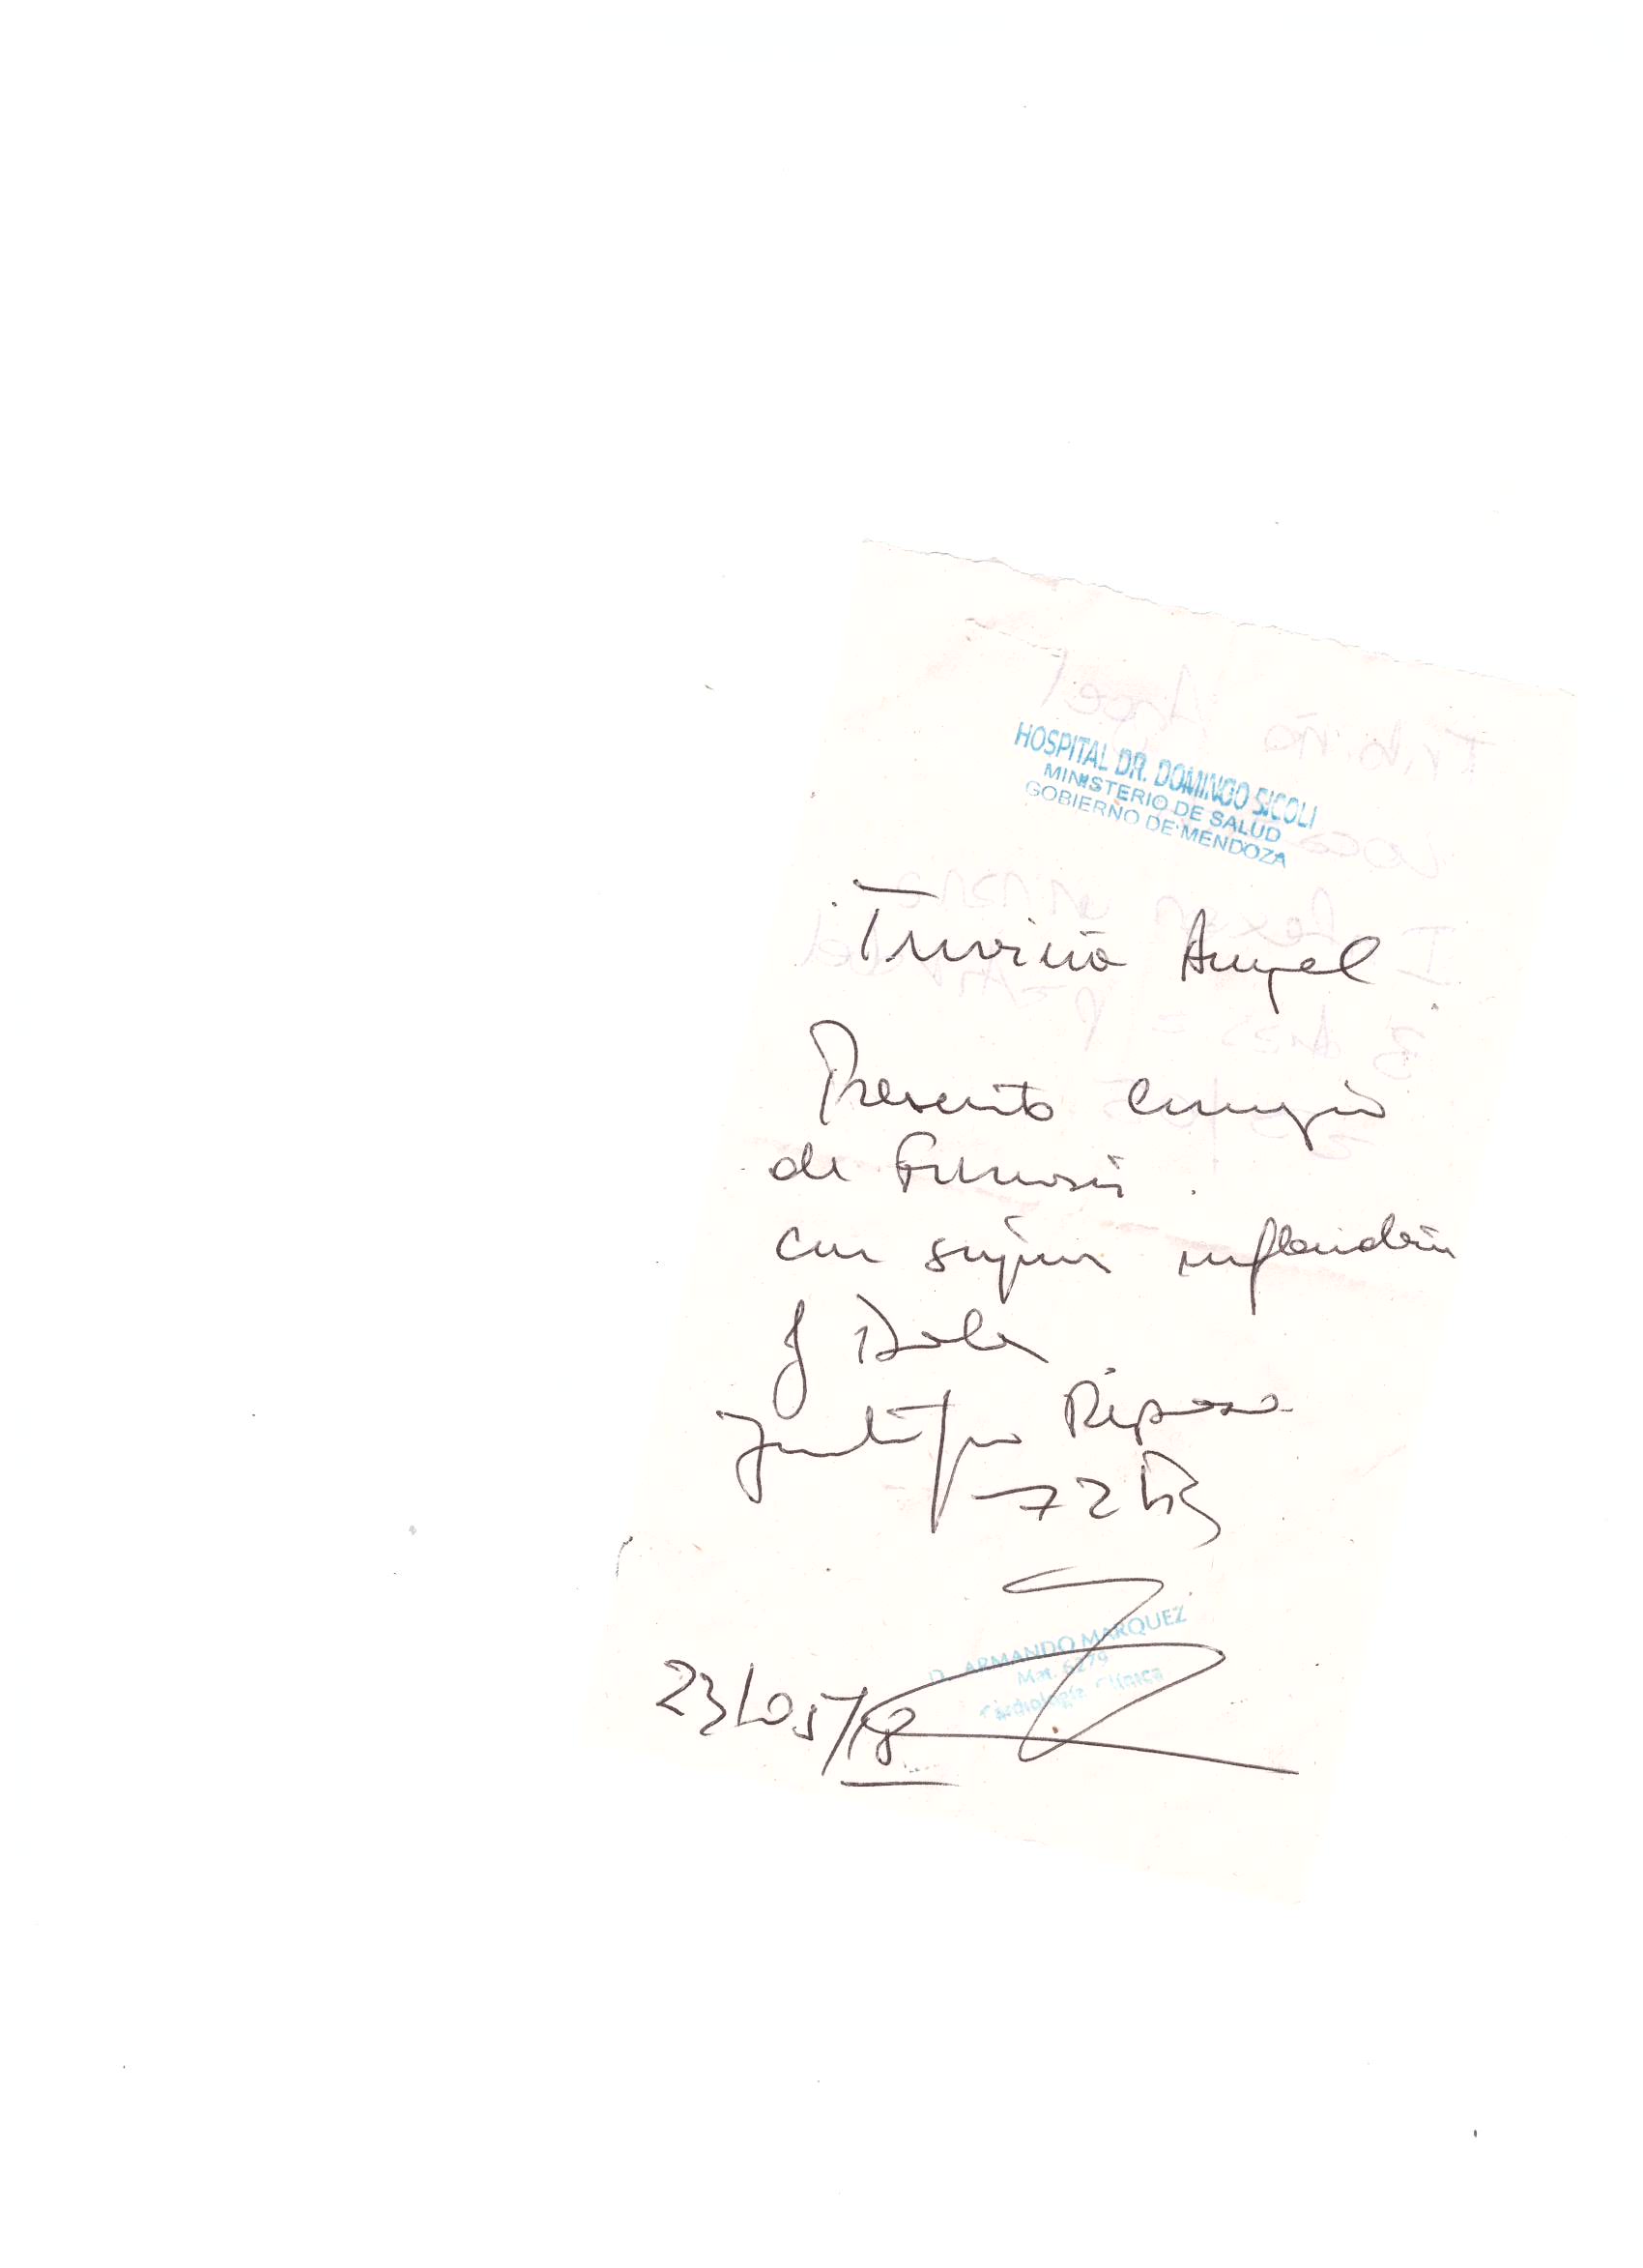 HOSPITAL DR. DOMINGO SICOLI
MINISTERIO DE SALUD
GOBIERNO DE MENDOZA
Triviño Angel
Presento cirugia
de Fimosis.
con signos inflamatorio
y Dolor
Justifico Reposo
72 hs
ARMANDO MARQUEZ
Mat. 6279
Cardiología Clínica
23/05/18